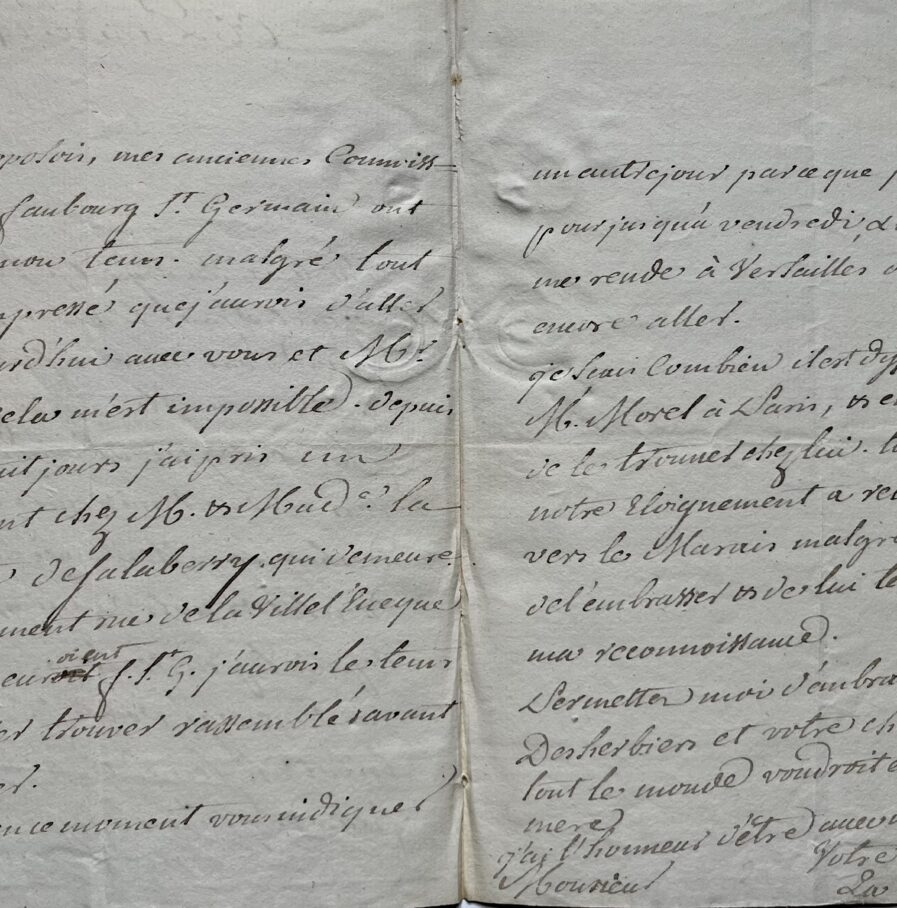 mes anciennes Connoiss
faubourg St. Germain ont
mon tems. malgré tout
que j'aurois d'aller
avec vous et Mr.
cela m'est impossible. depuis
jours j'ai pris un
chez M. & Made. la
de Salaberry. qui demeure
rue de la Ville l'Eveque
f. St. G. j'aurois le tems
trouver rassemblés avant
en ce moment vous indiquer
un autre jour parce que
pour jusqu'à vendredi, &
me rende à Versailles
encore aller.
je scais Combien il est
M. Morel à Paris, &
de le trouver chez lui.
notre Eloignement a
vers le Marais malgré
de l'embrasser & de lui
ma reconnoissance.
Permettez moi d'embra
Desherbiers et votre
tout le monde voudroit
mere
j'ai l'honneur d'être avec
Votre
Monsieur
La